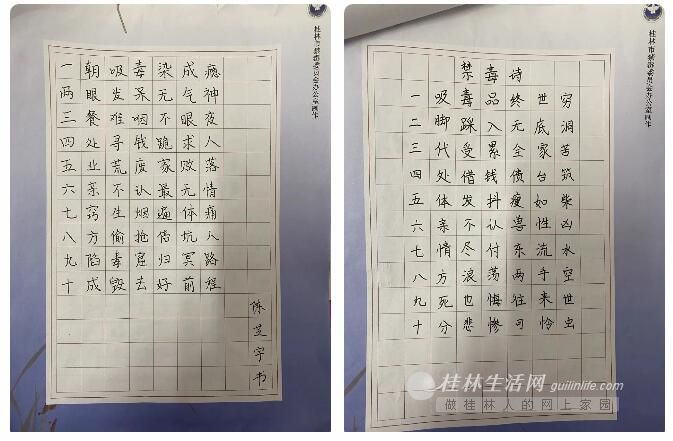 桂林市禁毒委员会办公室制作
一朝吸毒染成瘾
两眼发呆无气神
三餐难咽不眼夜
四处寻钱跪求人
五业荒废家败落
六亲不认最无情
七窍生烟遍体痛
八方偷抢借坑人
九陷毒窟归冥路
十成毁去好前程
陈芝宇书
桂林市禁毒委员会办公室制作
禁毒诗
一吸毒品终世穷
二脚踩入无底洞
三代受累全家苦
四处借钱债台筑
五体发抖瘦如柴
六亲不认兽性凶
七情尽付东流水
八方浪荡两手空
九死也悔往来世
十分悲惨可怜虫
桂林生活网 guilinlife.com
做桂林人的网上家园